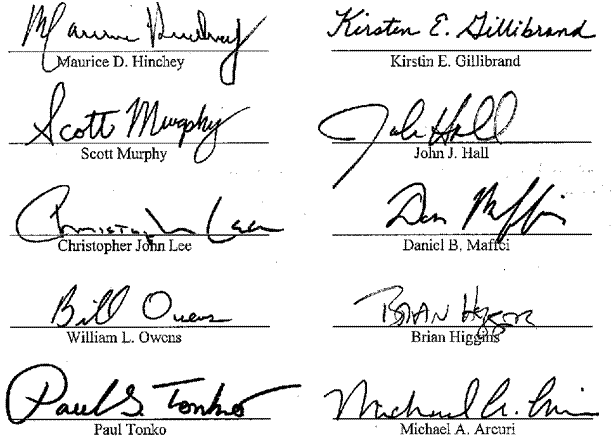 Maurice Hinchey Kirsten E. Gillibrand
Maurice D. Hinchey Kirstin E. Gillibrand
Scott Murphy John Hall
Scott Murphy John J. Hall
Christopher Lee Dan Maffei
Christopher John Lee Daniel B. Maffei
Bill Owens Brian Higgins
William L. Owens Brian Higgins
Paul G. Tonko Michael A. Arcuri
Paul Tonko Michael A. Arcuri